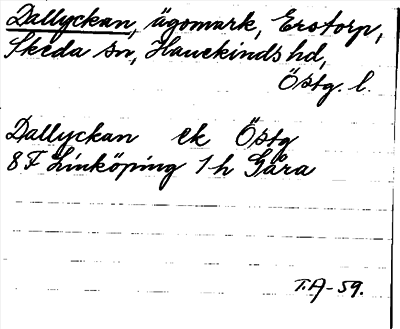 Dallyckan, ägomark, Erstorp,
Skeda sn, Hanekinds hd,
Östg. l.
Dallyckan ek Östg
8F Linköping 1h Gåra
T.A-59.